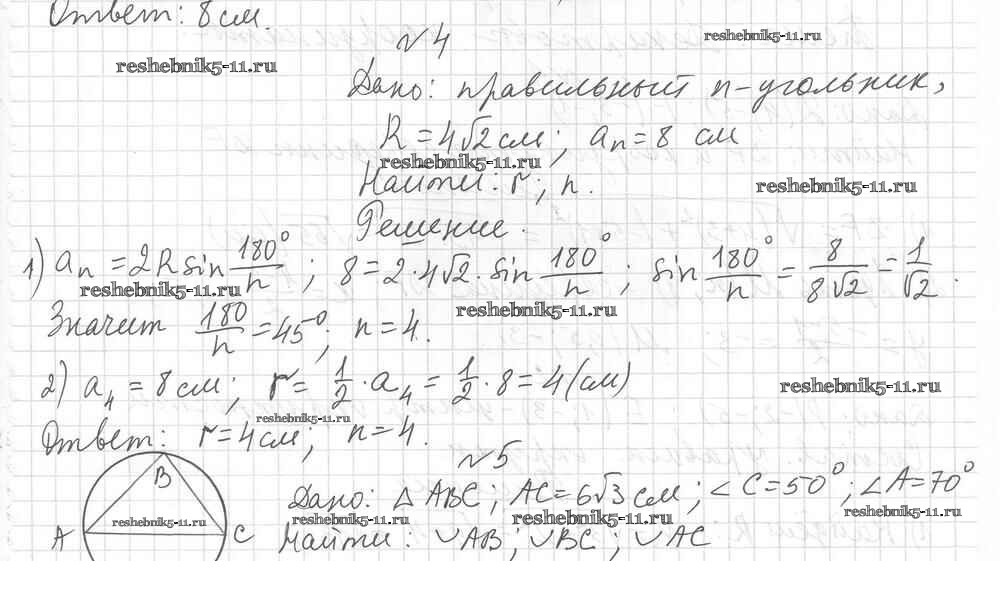 Ответ: 8 см.
reshebnik5-11.ru
№4
reshebnik5-11.ru
Дано: правильный n-угольник,
R = 4√2 см; aₙ = 8 см
reshebnik5-11.ru
Найти: r; n.
reshebnik5-11.ru
Решение.
1) aₙ = 2R sin 180°/n ; 8 = 2·4√2 · sin 180°/n ; sin 180°/n = 8/8√2 = 1/√2 .
reshebnik5-11.ru
reshebnik5-11.ru
Значит 180/n = 45°; n = 4.
2) a₄ = 8 см; r = 1/2 · a₄ = 1/2 · 8 = 4 (см)
reshebnik5-11.ru
reshebnik5-11.ru
Ответ: r = 4 см; n = 4.
№5
B
Дано: △ ABC; AC = 6√3 см; ∠ C = 50°; ∠ A = 70°
reshebnik5-11.ru
reshebnik5-11.ru
reshebnik5-11.ru
reshebnik5-11.ru
A
C
Найти: ◡AB; ◡BC; ◡AC